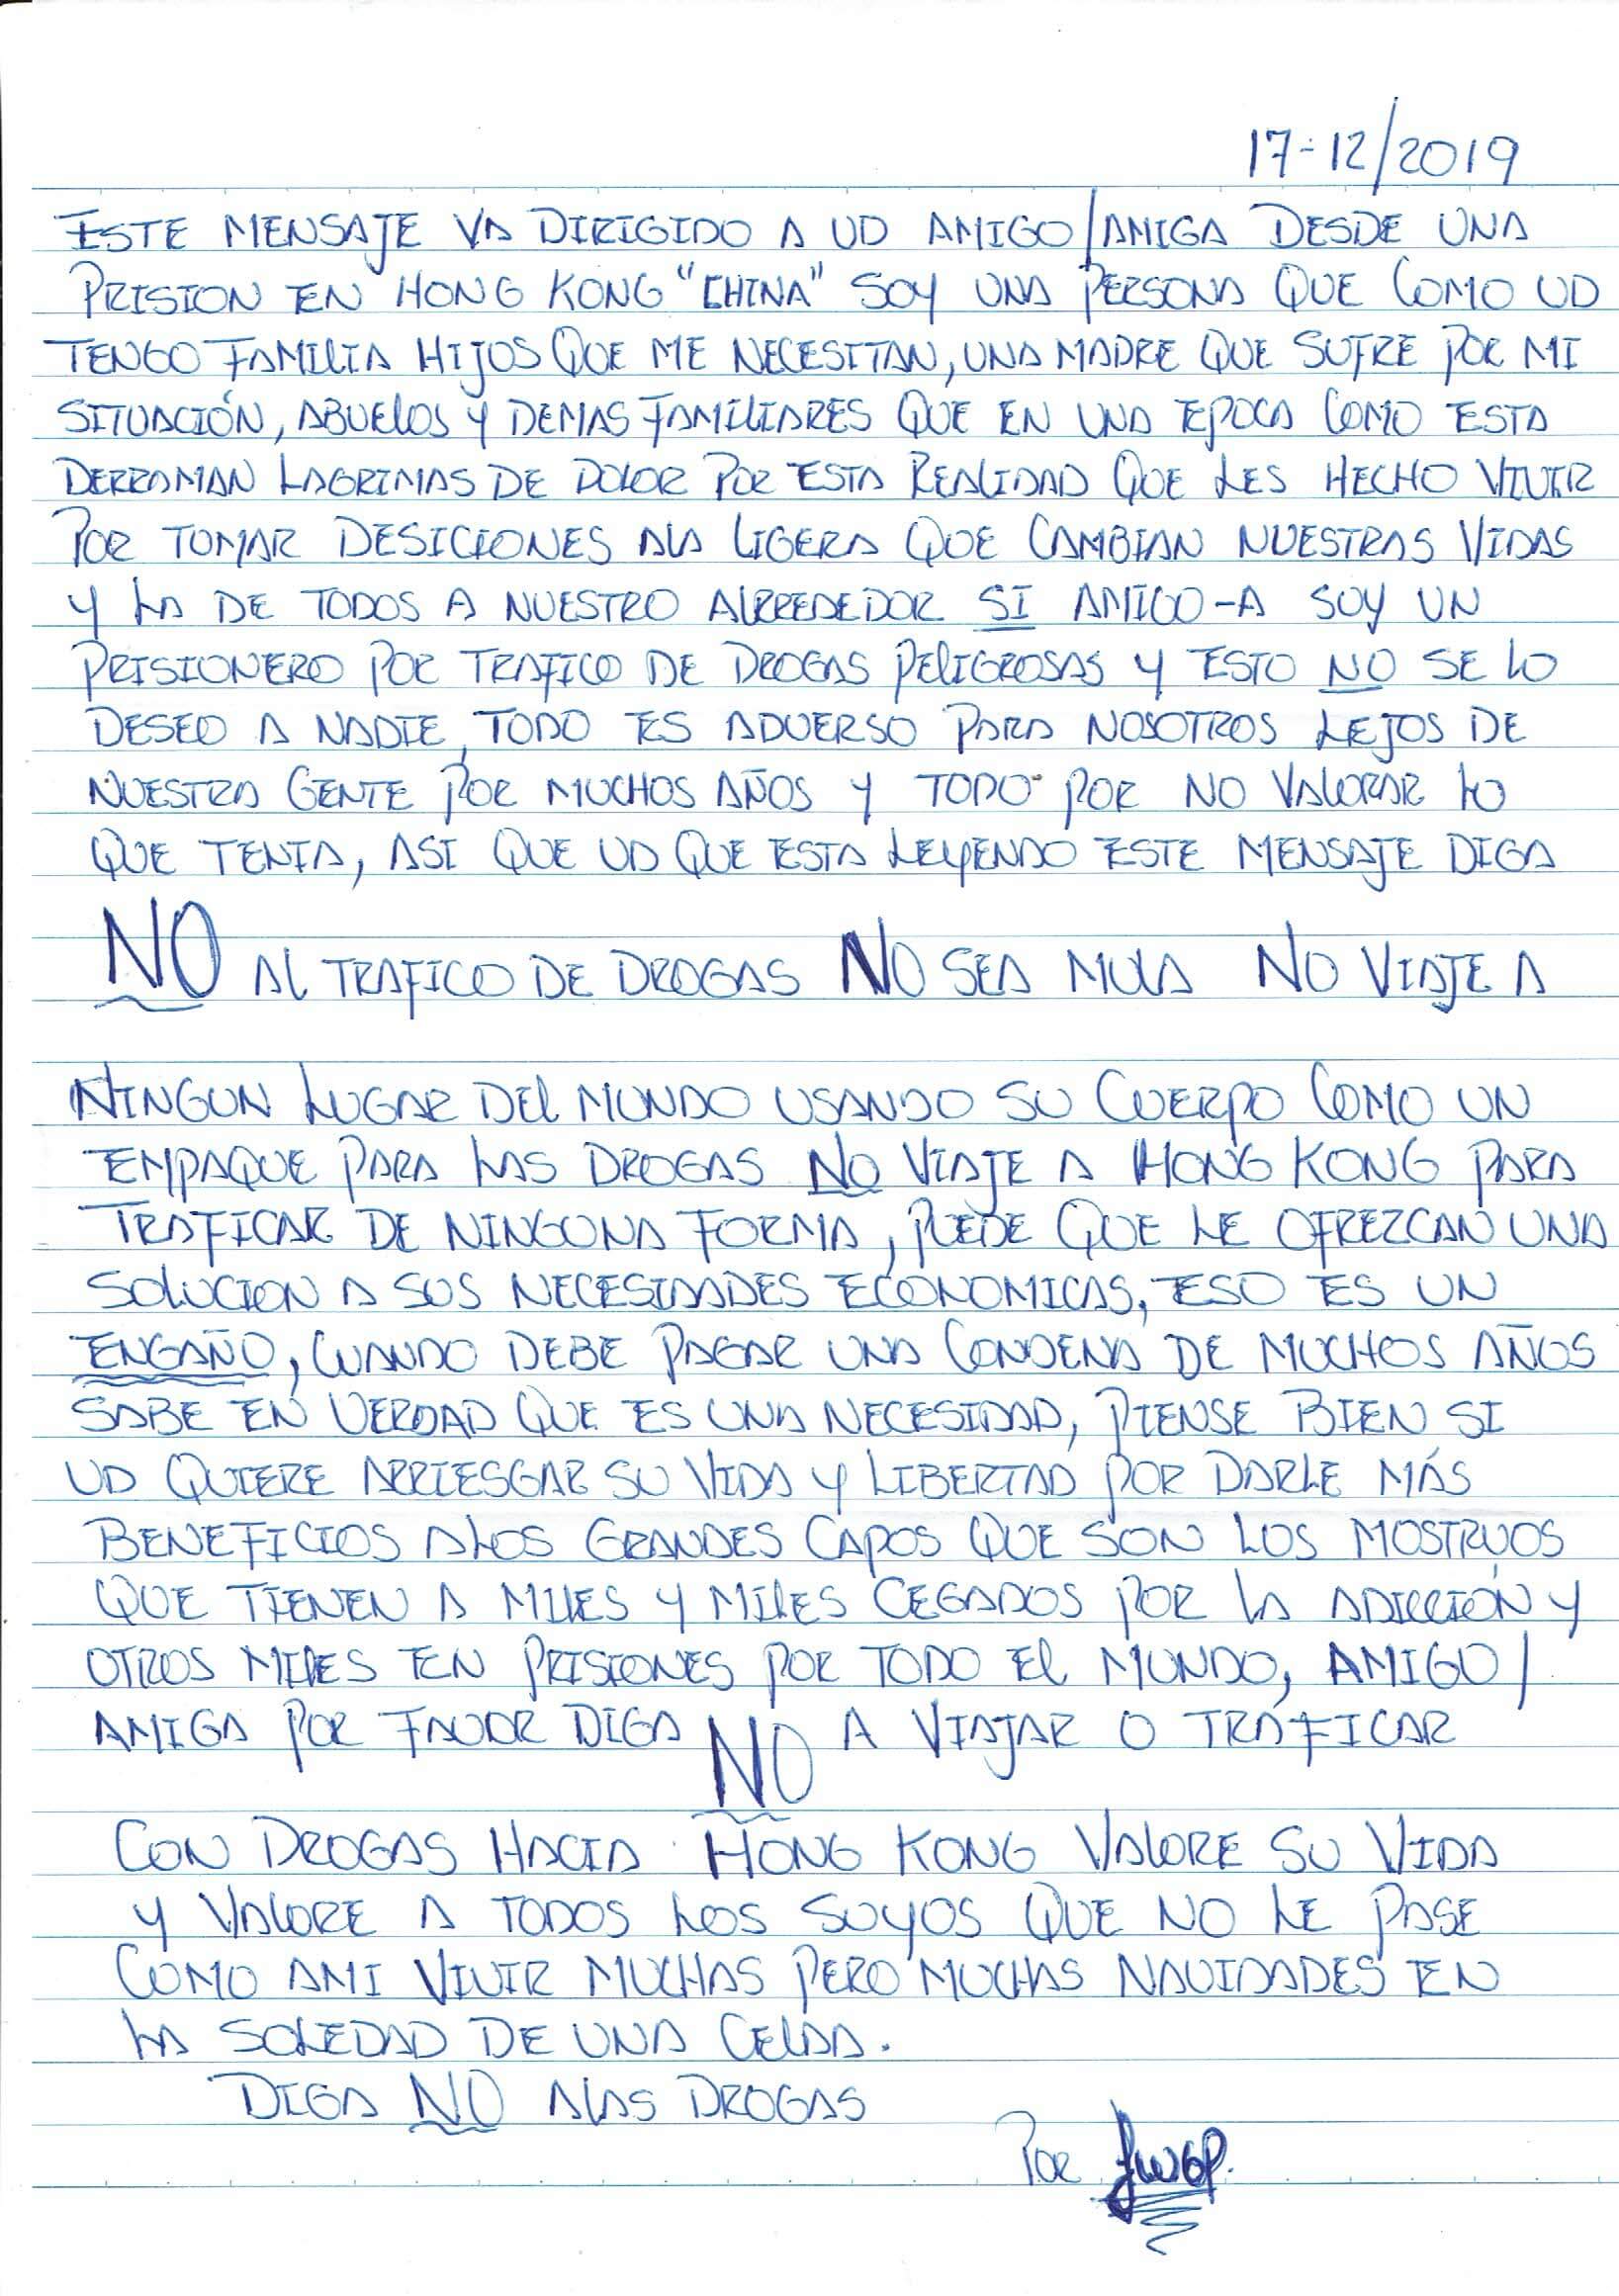 17-12/2019
ESTE MENSAJE VA DIRIGIDO A UD AMIGO/AMIGA DESDE UNA
PRISION EN HONG KONG "CHINA" SOY UNA PERSONA QUE COMO UD
TENGO FAMILIA HIJOS QUE ME NECESITAN, UNA MADRE QUE SUFRE POR MI
SITUACIÓN, ABUELOS Y DEMAS FAMILIARES QUE EN UNA EPOCA COMO ESTA
DERRAMAN LAGRIMAS DE DOLOR POR ESTA REALIDAD QUE LES HECHO VIVIR
POR TOMAR DESICIONES ALA LIGERA QUE CAMBIAN NUESTRAS VIDAS
Y LA DE TODOS A NUESTRO ALRREDEDOR SI AMIGO-A SOY UN
PRISIONERO POR TRAFICO DE DROGAS PELIGROSAS Y ESTO NO SE LO
DESEO A NADIE, TODO ES ADVERSO PARA NOSOTROS LEJOS DE
NUESTRA GENTE POR MUCHOS AÑOS Y TODO POR NO VALORAR LO
QUE TENIA, ASI QUE UD QUE ESTA LEYENDO ESTE MENSAJE DIGA
NO AL TRAFICO DE DROGAS NO SEA MULA NO VIAJE A
NINGUN LUGAR DEL MUNDO USANDO SU CUERPO COMO UN
EMPAQUE PARA LAS DROGAS NO VIAJE A HONG KONG PARA
TRAFICAR DE NINGUNA FORMA, PUEDE QUE LE OFREZCAN UNA
SOLUCION A SUS NECESIDADES ECONOMICAS, ESO ES UN
ENGAÑO, CUANDO DEBE PAGAR UNA CONDENA DE MUCHOS AÑOS
SABE EN VERDAD QUE ES UNA NECESIDAD, PIENSE BIEN SI
UD QUIERE ARRIESGAR SU VIDA Y LIBERTAD POR DARLE MÁS
BENEFICIOS ALOS GRANDES CAPOS QUE SON LOS MOSTRUOS
QUE TIENEN A MILES Y MILES CEGADOS POR LA ADICCIÓN Y
OTROS MILES EN PRISIONES POR TODO EL MUNDO, AMIGO/
AMIGA POR FAVOR DIGA NO A VIAJAR O TRAFICAR
CON DROGAS HACIA HONG KONG VALORE SU VIDA
Y VALORE A TODOS LOS SUYOS QUE NO LE PASE
COMO AMI VIVIR MUCHAS PERO MUCHAS NAVIDADES EN
LA SOLEDAD DE UNA CELDA.
DIGA NO ALAS DROGAS
POR